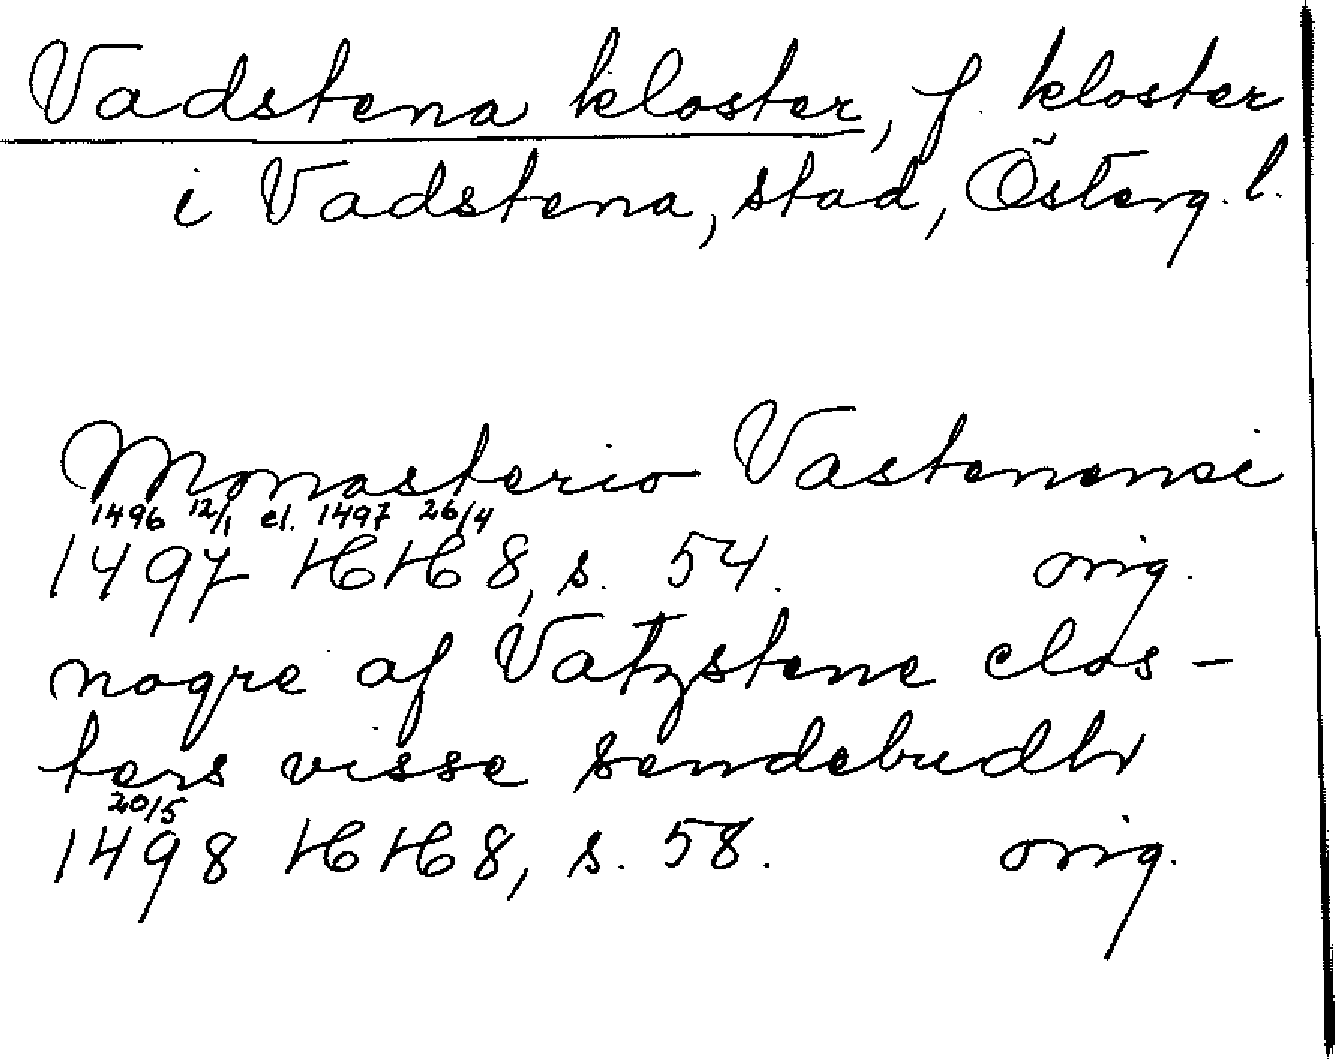 Vadstena kloster, f. kloster
i Vadstena, stad, Österg. l.
Monasterio Vastenensi
1496 12/1 el. 1497 26/4
1497 HH 8, s. 54. orig.
nogre af Vatzstene clos-
ters visse sendebudhr
20/5
1498 HH 8, s. 58. orig.